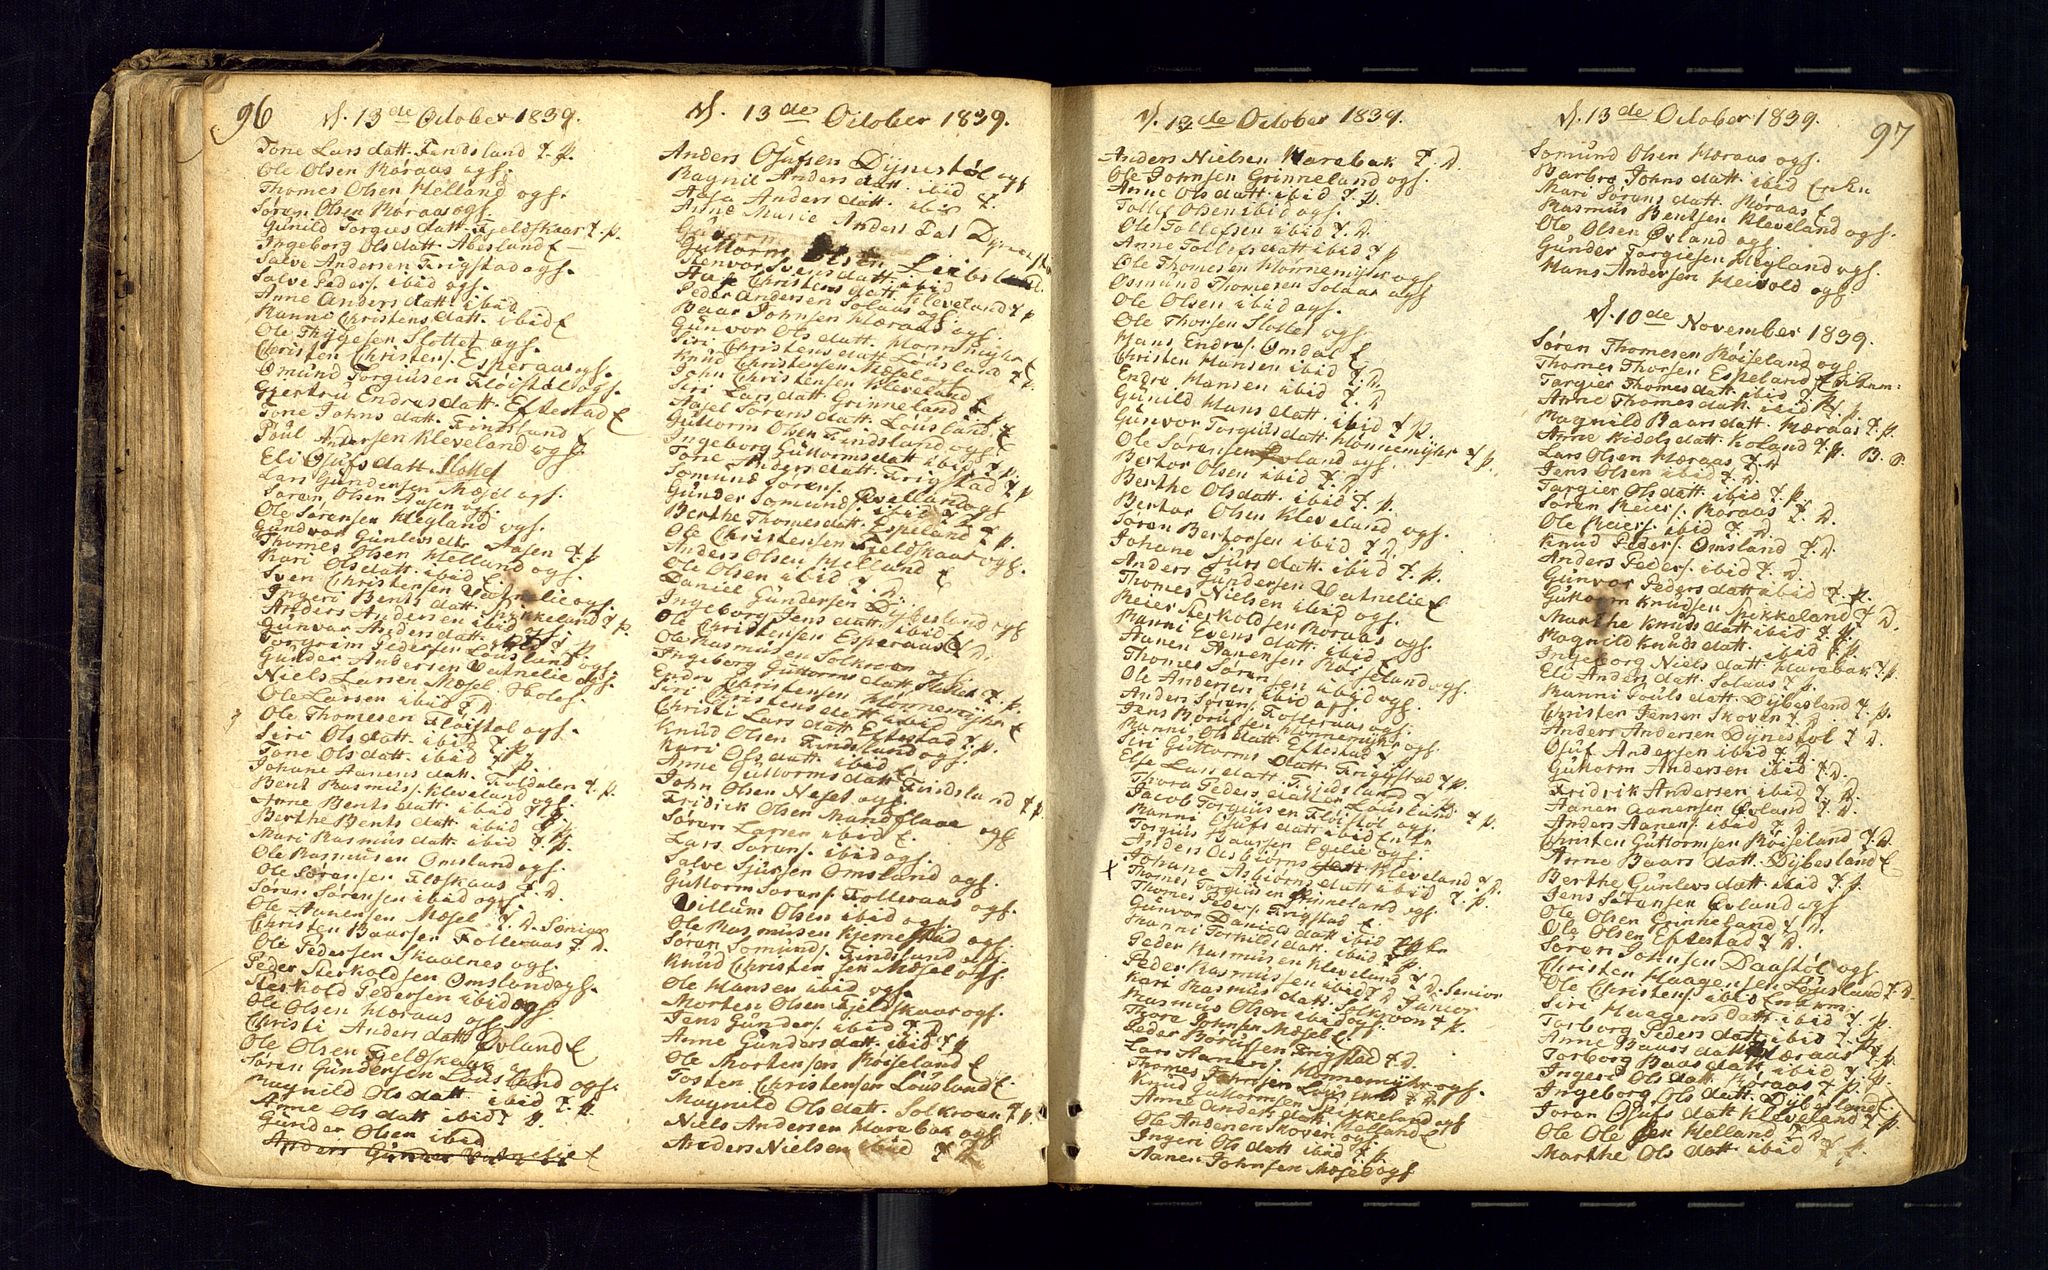 96
d. 13de October 1839.
Tone Lars datt. Findsland T. p.
Ole Olsen Røraas ogs.
Thomes Olsen Helland ogs.
Søren Olsen Røraas ogs.
Gunild Torgus datt. Fjeldskaar T. p.
Ingeborg Ols datt. Abesland E
Salve Andersen Frigstad ogs.
Salve Peders. ibid ogs.
Anne Anders datt. ibid
Ranni Christens datt. ibid E
Ole Thygesen Slottet ogs.
Christen Christens. Esperaas ogs.
Omund Torgiusen Fløistøl ogs.
Gjertru Endres datt. Eftestad E
Tone Johns datt. Findsland E
Poul Andersen Kleveland ogs.
Eli Osufs datt. Slottet
Lars Gundersen Mæsel ogs.
Søren Olsen Aasen ogs.
Ole Sørensen Hegland ogs.
Gunvor Gunlevs dtr. Aasen T. p
Thomes Olsen Helland ogs.
Kari Ols datt. ibid E
Sven Christensen Vatnelie ogs.
Ingeri Bents datt. Spikkeland T. p.
Anders Andersen ibid
Gunvor Anders datt. ibid T. p
Torgrim Pedersen Lousland ogs.
Gunder Andersen Vatnelie ogs.
Niels Larsen Mæsel
Ole Larsen ibid T. D
Ole Thomesen Fløistøl ogs.
Siri Ols datt. ibid T. p.
Tone Ols datt. ibid T. p.
Johane Aanens datt. Foldalen T. p.
Bent Rasmus. Kleveland ogs.
Anne Bents datt. ibid T. p.
Berthe Bents datt. ibid T. p.
Mari Rasmus datt. ibid T. p.
Ole Rasmusen Omsland ogs.
Ole Sørensen Flæskaas T. D.
Søren Sørensen ibid ogs.
Ole Aanensen Mæsel T. D. Senior
Christen Baarsen Folleraas T. D.
Ole Pedersen Skaalnes ogs.
Peder Reskoldsen Omsland ogs.
Reskold Pedersen ibid ogs
Ole Olsen Høraas ogs
Christi Anders datt. Øvland E
Ole Olsen Fjeldskaar ogs.
Søren Gundersen Lousland ogs.
Magnild Ols datt. ibid T. p.
Anne Ols datt ibid T. p.
Gunder Olsen ibid
Anders Gunder Vatnelie E
d. 13de October 1839.
Anders Osufsen Dynestøl ogs
Ragnil Anders datt. ibid T.
Aasa Anders datt. ibid
Anne Marie Anders Dat Dynestøl
Guttorm Olsen Leibsland
Stenvor Svens datt. ibid
Christens datt. Kleveland T. p
Peder Andersen Solaas ogs.
Baar Johnsen Høraas ogs.
Gunvor Ols datt. Honnemyhr E
Siri Christens datt. Lousland T. p.
Knud Christensen Mæsel ogs
John Christensen Kleveland
Siri Lars datt. Grinneland E
Aasel Sørens datt. Lousland T.
Guttorm Olsen Findsland ogs.
Ingeborg Guttorms datt ibid T. p.
Tone Anders datt. Frigstad T. p
Somund Sørens. Qvelland ogs
Gunder Somunds. ibid ogs
Berthe Thomes datt. Espeland T. p.
Ole Christensen Fjeldskaar ogs.
Anders Olsen Helland E
Ole Olsen ibid T. D.
Daniel Gundersen Dybesland ogs
Ingeborg Jens datt. ibid E
Ole Christensen Esperaas T. D.
Ole Rasmusen Solkroen ogs.
Ingeborg Guttorms datt. Slottet T. p.
Endre Christensen Honnemyhr E
Siri Christens datt. ibid
Christi Lars datt Eftestad T. p.
Knud Olsen Findsland ogs.
Kari Ols datt. ibid E
Anne Guttorms datt Findsland T. p
John Olsen Neset ogs.
Fridrick Olsen Mandflaae ogs
Søren Larsen ibid E.
Lars Sørens. ibid ogs.
Salve Sjursen Omsland ogs.
Guttorm Sørens. Folleraas ogs.
Villum Olsen ibid ogs.
Ole Rasmusen Kjemestad ogs.
Søren Somunds. Findsland ogs
Knud Christensen Mæsel ogs.
Ole Hansen ibid ogs.
Morten Olsen Fjeldskaar ogs.
Jens Gunders. ibid T. D.
Anne Gunders datt. ibid T. p
Ole Mortensen Røiseland E
Tosten Christensen Lousland E.
Magnild Ols datt. Solkroen T. p.
Niels Andersen Harebak ogs
Anders Nielsen ibid
d. 13de October 1839.
Anders Nielsen Harebak T. D.
Ole Johnsen Grinneland ogs.
Anne Ols datt. ibid T. p.
Tollef Olsen ibid ogs.
Ole Tollefsen ibid T. D.
Anne Tollefs datt ibid T. p
Ole Thomesen Honnemyhr ogs.
Osmund Thomesen Solaas ogs
Ole Olsen ibid ogs.
Ole Thorsen Slottet ogs.
Hans Endres. Omdal E
Christen Hansen ibid E
Endre Hansen ibid T. D.
Gunild Hans datt. ibid T. p.
Gunvor Torgius datt. Honnemyhr T. p.
Ole Sørensen Øvland ogs.
Bertor Olsen ibid T. D.
Berthe Ols datt. ibid T. p.
Bertor Olsen Kleveland ogs.
Søren Bertorsen ibid T. D.
Johane Sjurs datt. ibid T. p.
Anders Gundersen Vatnelie E
Thomes Nielsen ibid ogs.
Reier Reskoldsen Røraas ogs.
Ranni Evens datt. ibid E
Aanen Aanensen Røiseland ogs.
Thomes Sørensen ibid ogs.
Ole Andersen ibid ogs.
Anders Sørens. Folleraas ogs.
Jens Børuasen Honnemyhr ogs
Ranni Ols datt. Eftestad T. p.
Siri Guttorms datt Frigstad T. p
Else Lars datt. Findsland T. p.
Thora Peders datter Lousland T. p.
Jacob Torgiusen Fløistøl ogs.
Ranni Osufs datt ibid Enke
Torgius Baarsen Egelie ogs.
Anders Asbiørns Kleveland T. D.
Johane Asbiørns datt ibid T. p.
Thomes Torgiusen Grinneland ogs.
Thomes Peders. Frigstad E
Gunvor Daniels datt ibid
Ranni Torkilds datt. ibid T. p.
Peder Rasmusen Kleveland T. D. Senior
Peder Rasmussen ibid T. D. Junior
Kari Rasmus datt. Solkroen T. p.
Rasmus Olsen ibid ogs.
Thore Johnsen Mæsel E
Peder Børufsen Frigstad T. D.
Lars Aanens. Honnemyhr ogs.
Thomes Jahnsen Lousland T. D
Knud Guttormsen Spikkeland ogs
Anne Anders datt. Helland E
Ole Andersen Skoven ogs.
Ingeri Ols datt ibid T. p.
Aanen Johnsen Mæsel ogs
97
d. 13de October 1839.
Somund Olsen Høraas ogs.
Barbro Johns datt. ibid Enken
Mari Sørens datt. Røraas E
Rasmus Bentsen Kleveland ogs.
Ole Olsen Øvland ogs.
Gunder Torgiesen Hegland ogs.
Hans Andersen Heivold ogs.
d. 10de November 1839.
Søren Thomesen Røiseland ogs.
Thomes Thorsen Espeland E
Targier Thomes datt. ibid T. p.
Anne Thomes datt. ibid T. p.
Magnild Baars datt. Høraas T. p.
Anne Kidels datt. Høland T. p. B. S.
Lars Olsen Høraas T. D
Jens Olsen ibid T. D.
Targier Ols datt. ibid T. p.
Søren Reiers. Røraas T. D.
Ole Reiers. ibid T. D.
Knud Peders. Omsland T. D.
Anders Peders. ibid T. D.
Gunvor Peders datt ibid T. p.
Guttorm Knudsen Spikkeland T. D.
Marthe Knuds datt ibid T. p.
Magnild Knuds datt. ibid T. p.
Ingeborg Niels datt. Harebak T. p
Eli Anders datt. Solaas T. p.
Ranni Pouls datt. Dybesland T. p.
Christen Jensen Skoven T. D
Anders Andersen Dynestøl T. D.
Osuf Andersen ibid T. D.
Guttorm Andersen ibid T. D.
Fridrik Andersen ibid T. D.
Aanen Aanensen Øvland T. D.
Anders Aanens. ibid T. D.
Christen Guttormsen Røiseland T. D.
Anne Baars datt. Dybesland E
Berthe Gunlevs datt. ibid T. p.
Jens Sørensen Øvland ogs.
Ole Olsen Grinneland T. D.
Ole Olsen Eftestad T. D.
Søren Johnsen Daastøl ogs
Christen Haagensen Lousland T. D.
Ole Christens. ibid
Siri Haagens datt ibid T. p.
Torborg Peders datt ibid T. p.
Anne Baars datt Høraas T. p
Torborg Baas datt. ibid T. p.
Ingeri Ols datt. Røraas T. p.
Ingeborg Ols datt. Dybesland E
Joran Osufs datt Kleveland T. p
Ole Olesen Helland T. D.
Marthe Ols datt. ibid T. p.